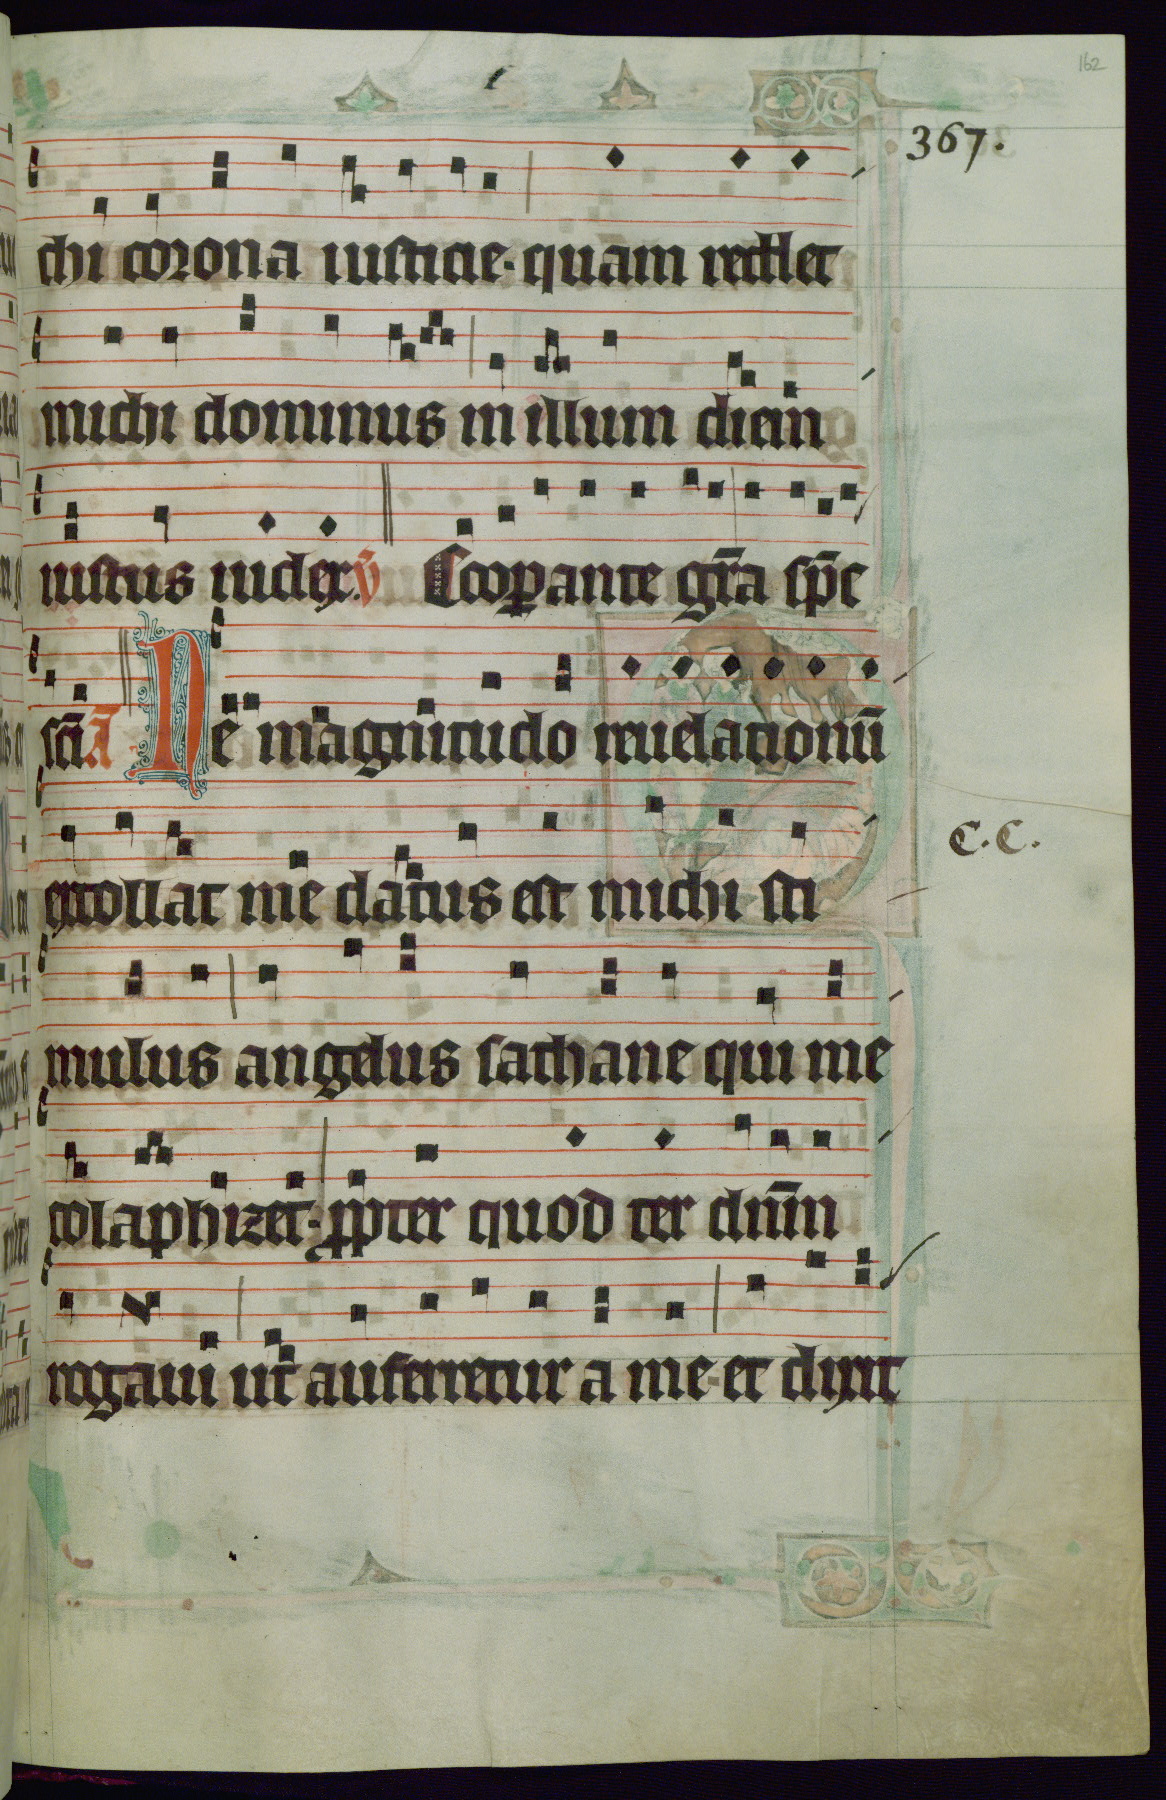 162
367.
chi corona iusticie· quam reddet
michi dominus in illum diem
iustus iudex. v̄ Coopante gr̄a sp̄c
sc̄i A Ne magnitudo reuelationū
extollat me datus est michi sti
C.C.
mulus angelus sathane qui me
colaphizet· ꝓpter quod ter dnm̄
rogaui ut auferretur a me· et dixit